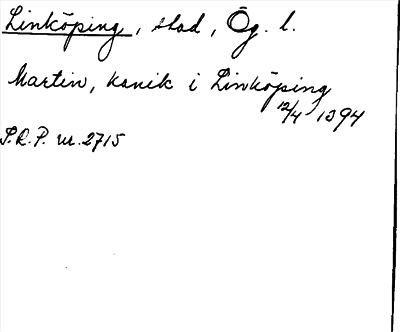 Linköping, stad, Ög. l.
Martin, kanik i Linköping
12/4 1394
S.R.P. nr. 2715